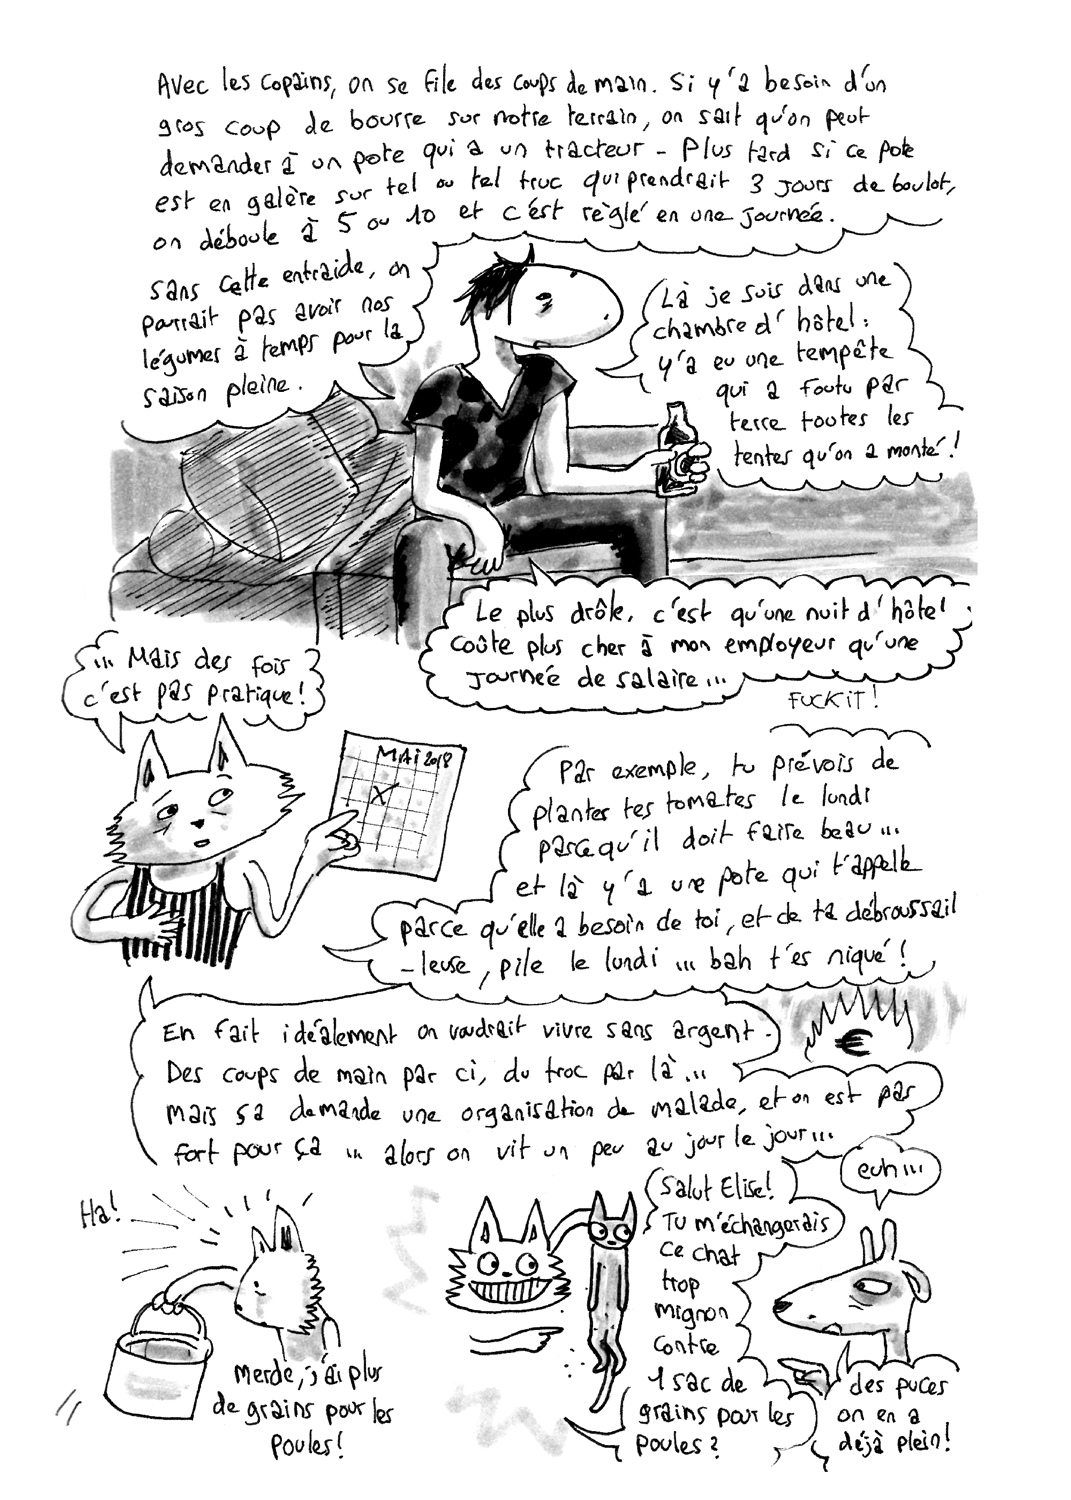 Avec les copains, on se file des coups de main. Si y'a besoin d'un
gros coup de bourre sur notre terrain, on sait qu'on peut
demander à un pote qui a un tracteur - Plus tard si ce pote
est en galère sur tel ou tel truc qui prendrait 3 jours de boulot,
on déboule à 5 ou 10 et c'est règlé en une journée.
Sans cette entraide, on
pourrait pas avoir nos
légumes à temps pour la
saison pleine.
Là je suis dans une
chambre d'hôtel :
y'a eu une tempête
qui a foutu par
terre toutes les
tentes qu'on a monté !
Le plus drôle, c'est qu'une nuit d'hôtel
coûte plus cher à mon employeur qu'une
journée de salaire...
FUCK IT !
... Mais des fois
c'est pas pratique !
MAI 2018
X
Par exemple, tu prévois de
planter tes tomates le lundi
parcequ'il doit faire beau...
et là y'a une pote qui t'appelle
parce qu'elle a besoin de toi, et de ta débroussail
-leuse, pile le lundi ... bah t'es niqué !
€
En fait idéalement on voudrait vivre sans argent.
Des coups de main par ci, du troc par là...
mais ça demande une organisation de malade, et on est pas
fort pour ça ... alors on vit un peu au jour le jour...
Ha !
Merde, j'ai plus
de grains pour les
poules !
Salut Elise !
Tu m'échangerais
ce chat
trop
mignon
contre
1 sac de
grains pour les
poules ?
euh...
des puces
on en a
déjà plein !